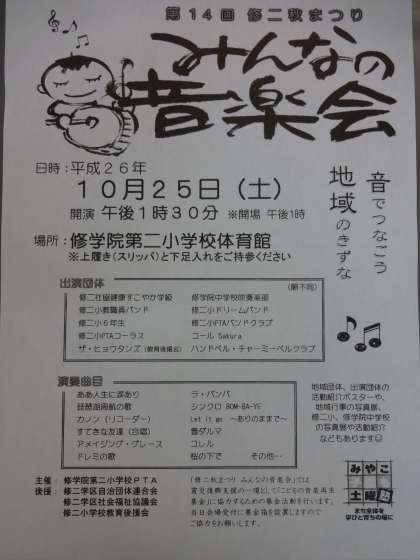 第14回 修二秋まつり
みんなの
音楽会
日時：平成26年
10月25日（土）
開演 午後1時30分 ※開場 午後1時
場所：修学院第二小学校体育館
※上履き（スリッパ）と下足入れをご持参ください
音でつなごう
地域のきずな
出演団体
（順不同）
修二社協健康すこやか学級 修学院中学校吹奏楽部
修二小教職員バンド 修二小ドリームバンド
修二小6年生 修二小PTAバンドクラブ
修二小PTAコーラス コール Sakura
ザ・ヒョウタンズ（教育後援会） ハンドベル・チャーミーベルクラブ
演奏曲目
ああ人生に涙あり ラ・バンバ
琵琶湖周航の歌 シンクロ BOM-BA-YE
カノン（リコーダー） Let it go ～ありのままで～
すてきな友達（合唱） 雪ダルマ
アメイジング・グレース コレル
ドレミの歌 桜の下で その他…
地域団体、出演団体の
活動紹介ポスターや、
地域行事の写真展、
修二小、修学院中学校
の写真展や活動紹介
などもあります☺
主催：修学院第二小学校PTA
後援：修二学区自治団体連合会
修二学区社会福祉協議会
修二小学校教育後援会
「修二秋まつり みんなの音楽会」では
震災復興支援の一環として「こどもの音楽再生
基金」に協力するための募金活動を行います。
当日会場受付に募金箱を設置しますので
ご協力をお願いします。
みやこ
土曜塾
まち全体を
学びと育ちの場に